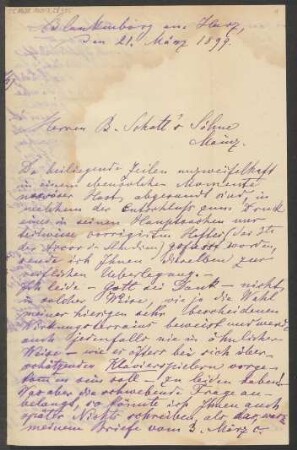 Blankenburg am Harz,
den 21. März 1899.
Herren B. Schott's Söhne
Mainz.
Da beiliegende Zeilen unzweifelhaft
in einem Momente
Hast, abgesandt sind, in
welchem der Entschluss zum Druck
eines in seinen Hauptsachen nur
corrigirten Heftes (des
der Studien) gefasst worden,
sende ich Ihnen dieselben zur
Ueberlegung. —
Ich leide — Gott sei Dank — nicht
in solcher Weise, wie ja die Wahl
meiner hiesigen sehr bescheidenen
Wirkungsterrains beweist und werde
auch jedenfalls nie in ähnlicher
Weise — wie es öfters bei sich über-
schätzenden Klavierspielern vorge-
kommen sein soll — zu leiden haben!
Was aber die schwebende Frage an-
belangt, so könnte ich Ihnen auch
später Nichts schreiben, als das, was
meinem Briefe vom 3. März c.